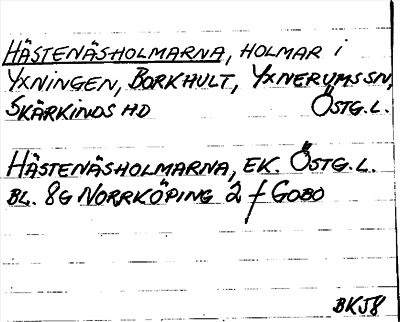 HÄSTENÄSHOLMARNA, HOLMAR i
YXNINGEN, BORKHULT, YXNERUMS SN,
SKÄRKINDS HD ÖSTG.L.
HÄSTENÄSHOLMARNA, EK. ÖSTG.L.
BL. 8G NORRKÖPING 2 f GOBO
BKJ8